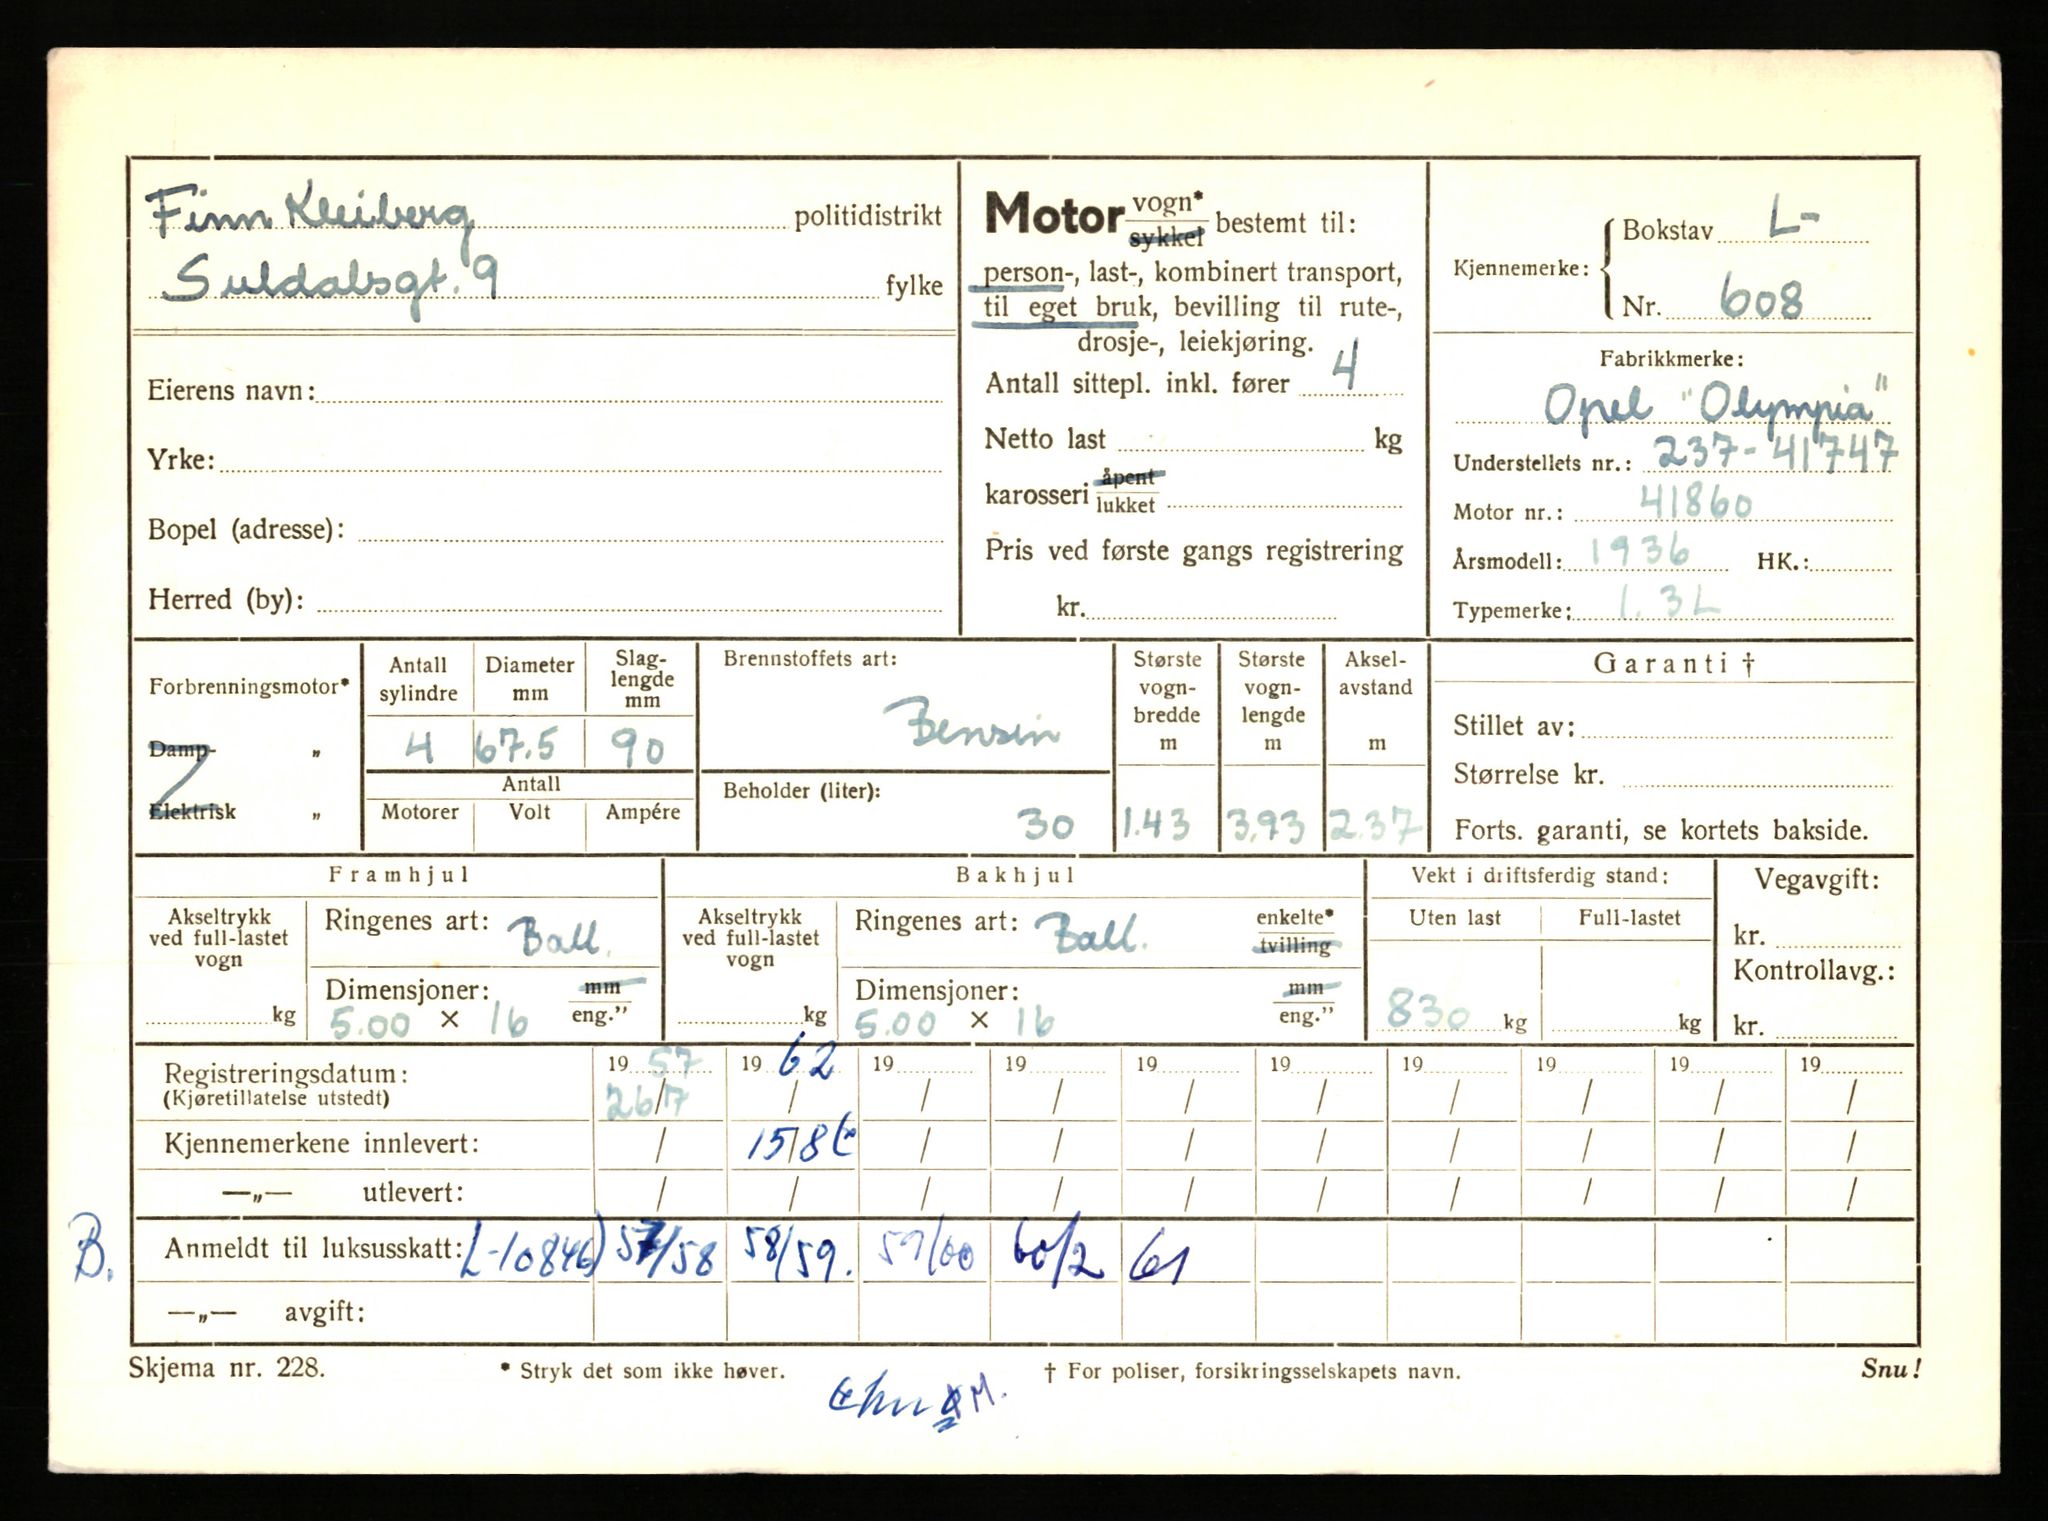 Finn Kleiberg politidistrikt
Suldalsgt. 9 fylke
Eierens navn:
Yrke:
Bopel (adresse):
Herred (by):
Motor vogn* sykkel bestemt til:
person-, last-, kombinert transport,
til eget bruk, bevilling til rute-,
drosje-, leiekjøring.
Antall sittepl. inkl. fører 4
Netto last kg
karosseri åpent lukket
Pris ved første gangs registrering
kr.
Kjennemerke: Bokstav L-
Nr. 608
Fabrikkmerke:
Opel "Olympia"
Understellets nr.: 237-41747
Motor nr.: 41860
Årsmodell: 1936 HK.:
Typemerke: 1.3L
Forbrenningsmotor*
Damp- „
Elektrisk „
Antall sylindre
4
Diameter mm
67.5
Slag-
lengde
mm
90
Antall
Motorer Volt Ampére
Brennstoffets art:
Bensin
Beholder (liter):
30
Største
vogn-
bredde
m
1.43
Største
vogn-
lengde
m
3.93
Aksel-
avstand
m
2.37
Garanti †
Stillet av:
Størrelse kr.
Forts. garanti, se kortets bakside.
Framhjul
Akseltrykk
ved full-lastet
vogn
kg
Ringenes art: Ball.
Dimensjoner: mm
5.00 × 16 eng."
Bakhjul
Akseltrykk
ved full-lastet
vogn
kg
Ringenes art: Ball. enkelte* tvilling
Dimensjoner: mm
5.00 × 16 eng."
Vekt i driftsferdig stand:
Uten last Full-lastet
830 kg kg
Vegavgift:
kr.
Kontrollavg.:
kr.
Registreringsdatum: 19 57 19 62 19 19 19 19 19 19 19 19
(Kjøretillatelse utstedt) 26/7 / / / / / / / / /
Kjennemerkene innlevert: / 15/8 / / / / / / / /
—„— utlevert: / / / / / / / / / /
B. Anmeldt til luksusskatt: L-10846) 57/58 58/59. 59/60 60/2 61
—„— avgift:
Skjema nr. 228. * Stryk det som ikke høver. † For poliser, forsikringsselskapets navn. Snu!